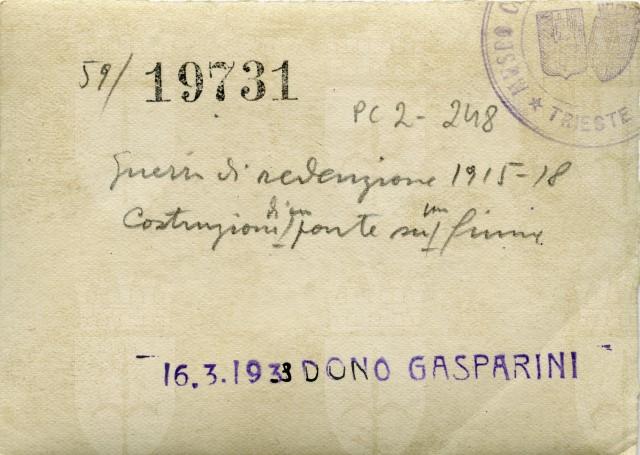 59/ 19731
MUSEO C
★ TRIESTE
PC 2-248
Guerra di redenzione 1915-18
Costruzioni di un ponte su un fiume
16.3.1933 DONO GASPARINI